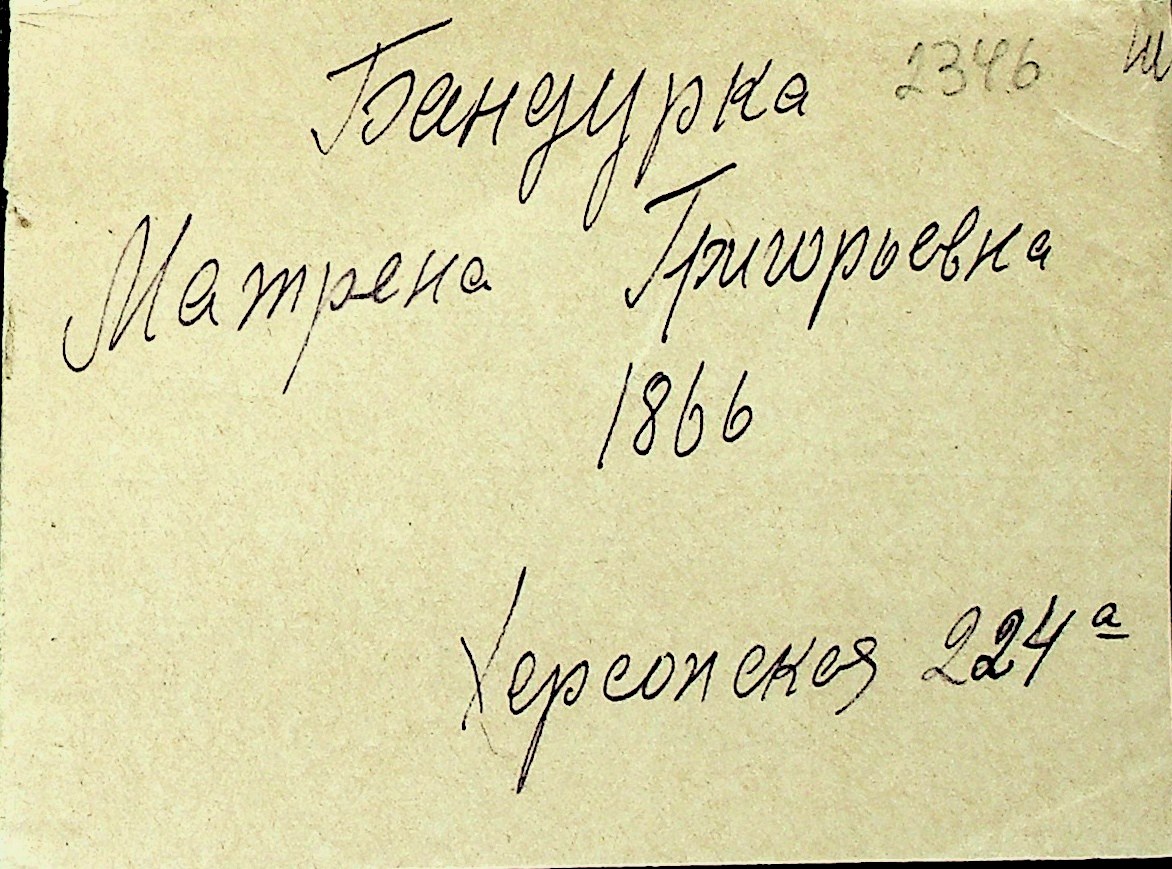 Бандурка 2346
Матрена Григорьевна
1866
Херсонская 224а